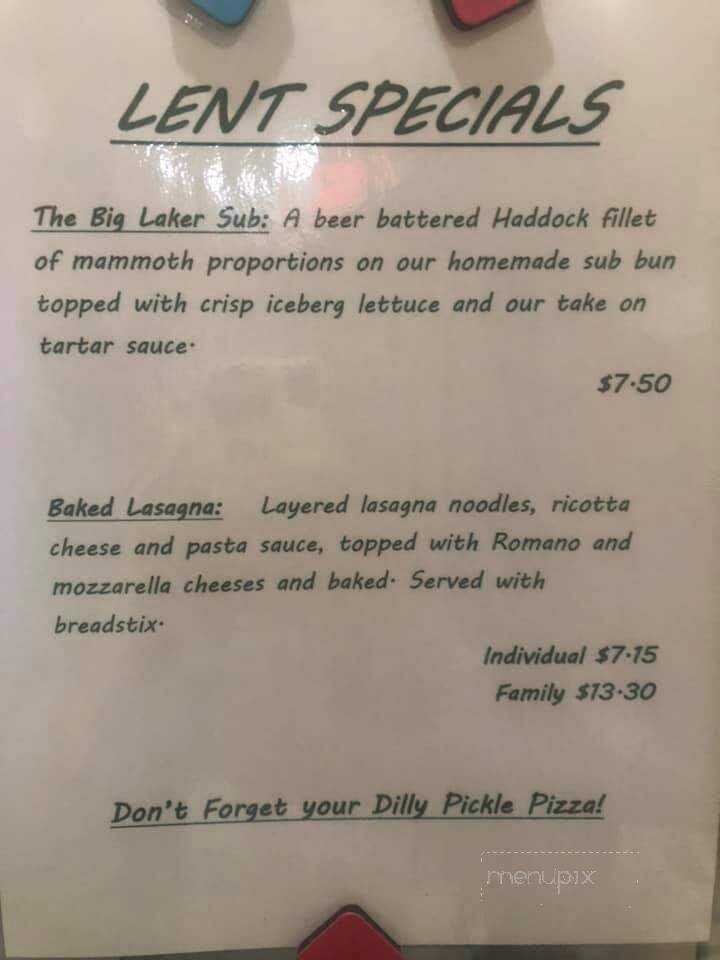 LENT SPECIALS
The Big Laker Sub: A beer battered Haddock fillet
of mammoth proportions on our homemade sub bun
topped with crisp iceberg lettuce and our take on
tartar sauce.
$7.50
Baked Lasagna: Layered lasagna noodles, ricotta
cheese and pasta sauce, topped with Romano and
mozzarella cheeses and baked. Served with
breadstix.
Individual $7.15
Family $13.30
Don't Forget your Dilly Pickle Pizza!
menupix